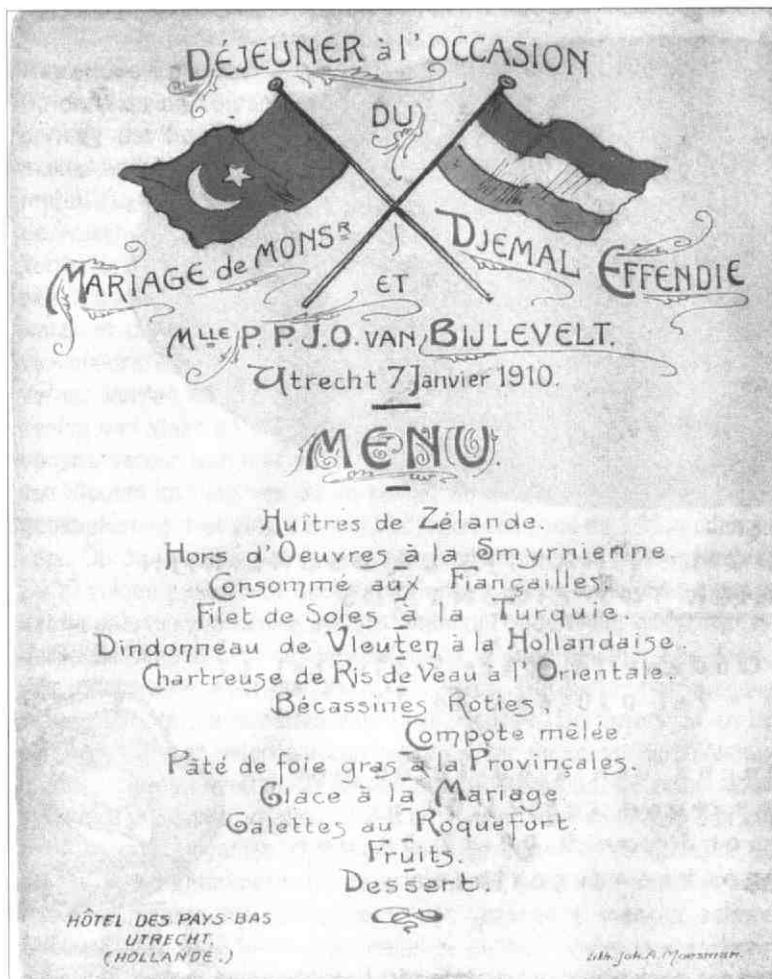 DÉJEUNER à l'OCCASION
DU
MARIAGE de MONSR DJEMAL EFFENDIE
ET
MLLE P. P.J.O. VAN BIJLEVELT.
Utrecht 7 Janvier 1910.
MENU.
Huîtres de Zélande.
Hors d'Oeuvres à la Smyrnienne
Consommé aux Fiançailles.
Filet de Soles à la Turquie
Dindonneau de Vleuten à la Hollandaise.
Chartreuse de Ris de Veau a l'Orientale.
Bécassines Roties.
Compote mêlée.
Pâté de foie gras à la Provinçales.
Glace à la Mariage
Galettes au Roquefort.
Fruits.
Dessert.
HÔTEL DES PAYS-BAS
UTRECHT.
(HOLLANDE.)
Lith. Joh. A. Moesman.